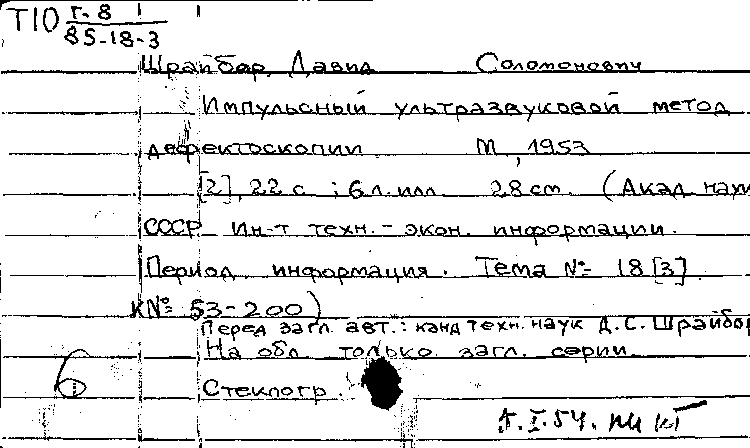 Т10 г.8
85-18-3
Шрайбер, Давид Соломонович
Импульсный ультразвуковой метод
дефектоскопии. М, 1953
[2], 22 с. ; 6 л. илл. 28 cm. (Акад наук
СССР Ин-т техн.-экон. информации.
Период информация. Тема № 18 [3]
К№ 53-200)
Перед загл. авт.: канд техн. наук Д.С. Шрайбер
На обл только загл. серии.
Стеклогр.